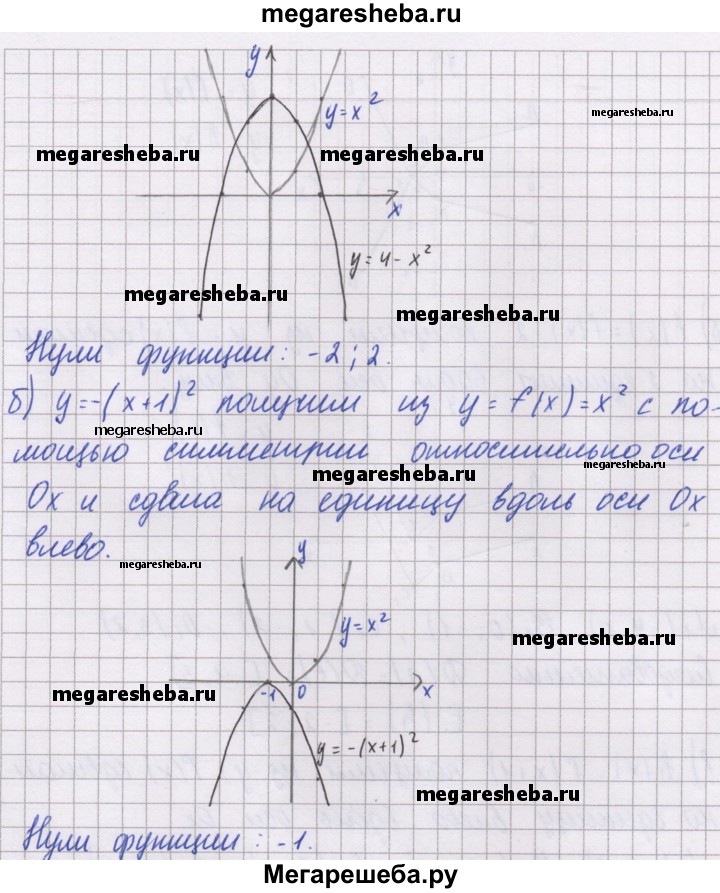 megaresheba.ru
y
y=x²
megaresheba.ru
megaresheba.ru
megaresheba.ru
x
y=4-x²
megaresheba.ru
megaresheba.ru
Нули функции: -2; 2.
б) y=-(x+1)² получим из y=f(x)=x² с по-
megaresheba.ru
мощью симметрии относительно оси
megaresheba.ru
megaresheba.ru
Ох и сдвига на единицу вдоль оси Ох
влево.
megaresheba.ru
y
y=x²
megaresheba.ru
megaresheba.ru
-1 0 x
y=-(x+1)²
megaresheba.ru
Нули функции: -1.
Мегарешеба.ру